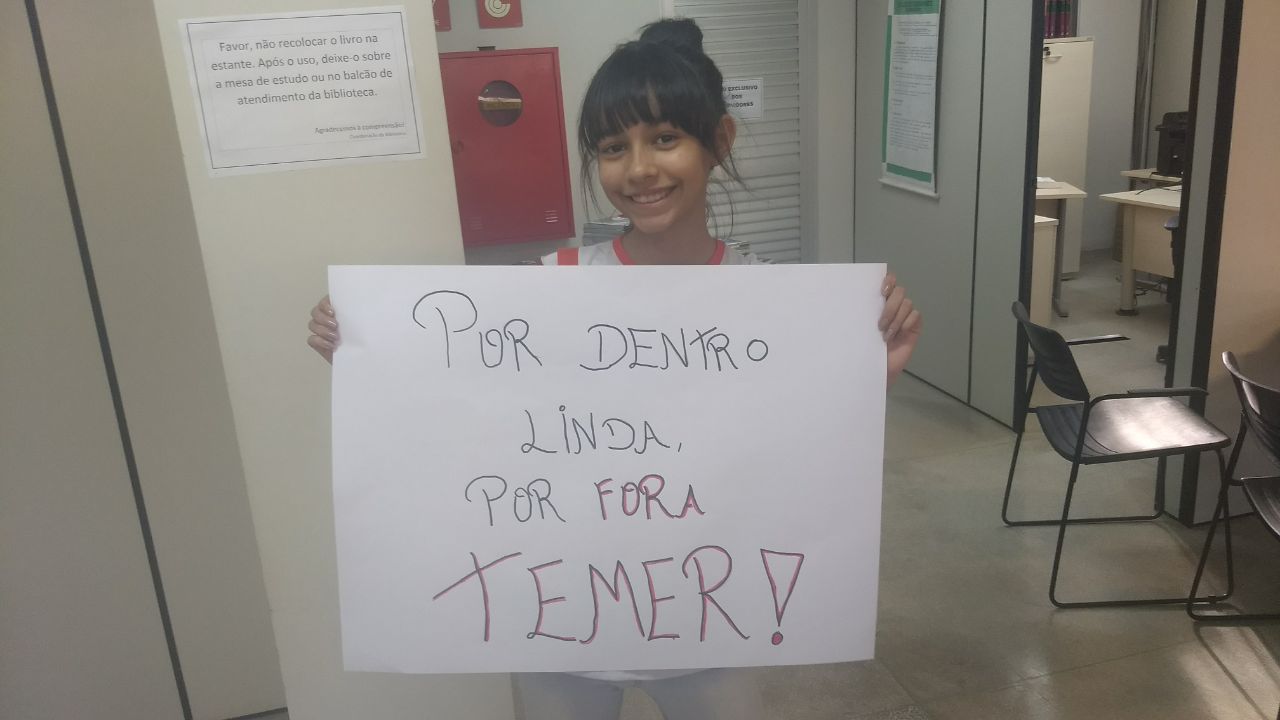 Favor, não recolocar o livro na
estante. Após o uso, deixe-o sobre
a mesa de estudo ou no balcão de
atendimento da biblioteca.
Agradecemos a compreensão!
Coordenação da Biblioteca
EXCLUSIVO
DOS
POR DENTRO
LINDA,
POR FORA
TEMER!